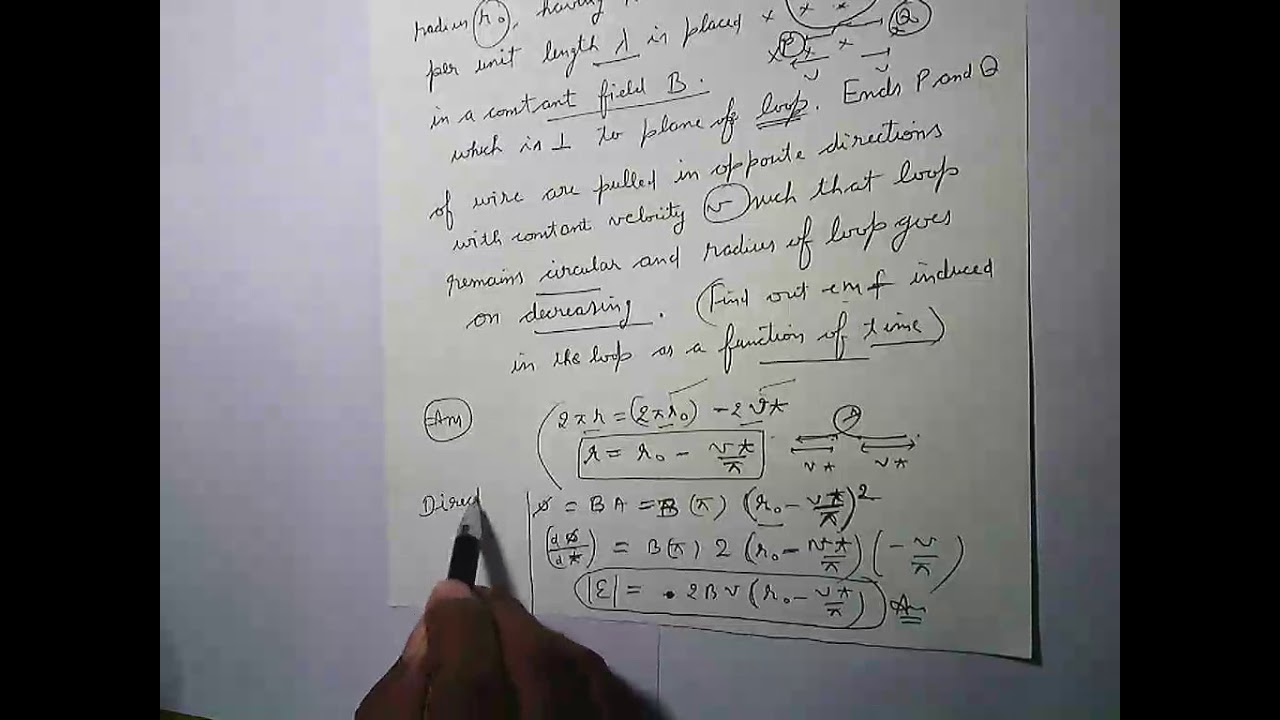 radius r₀, having
per unit length λ is placed × × ×
in a constant field B. × P × × Q
v v
which is ⊥ to plane of loop. Ends P and Q
of wire are pulled in opposite directions
with constant velocity v such that loop
remains circular and radius of loop goes
on decreasing. (Find out emf induced
in the loop as a function of time)
Ans 2πr = (2πr₀) - 2vt
r = r₀ - vt/π
vt vt
Direc φ = BA = B(π) (r₀ - vt/π)²
(dφ/dt) = B(π) 2 (r₀ - vt/π) (- v/π)
|ε| = 2Bv (r₀ - vt/π) Ans